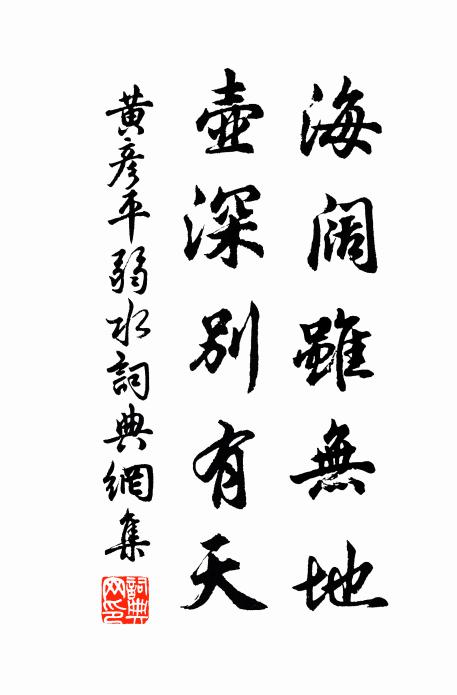 海闊雖無地
壺深別有天
黃彥平弱水詞典網集
詞典網印